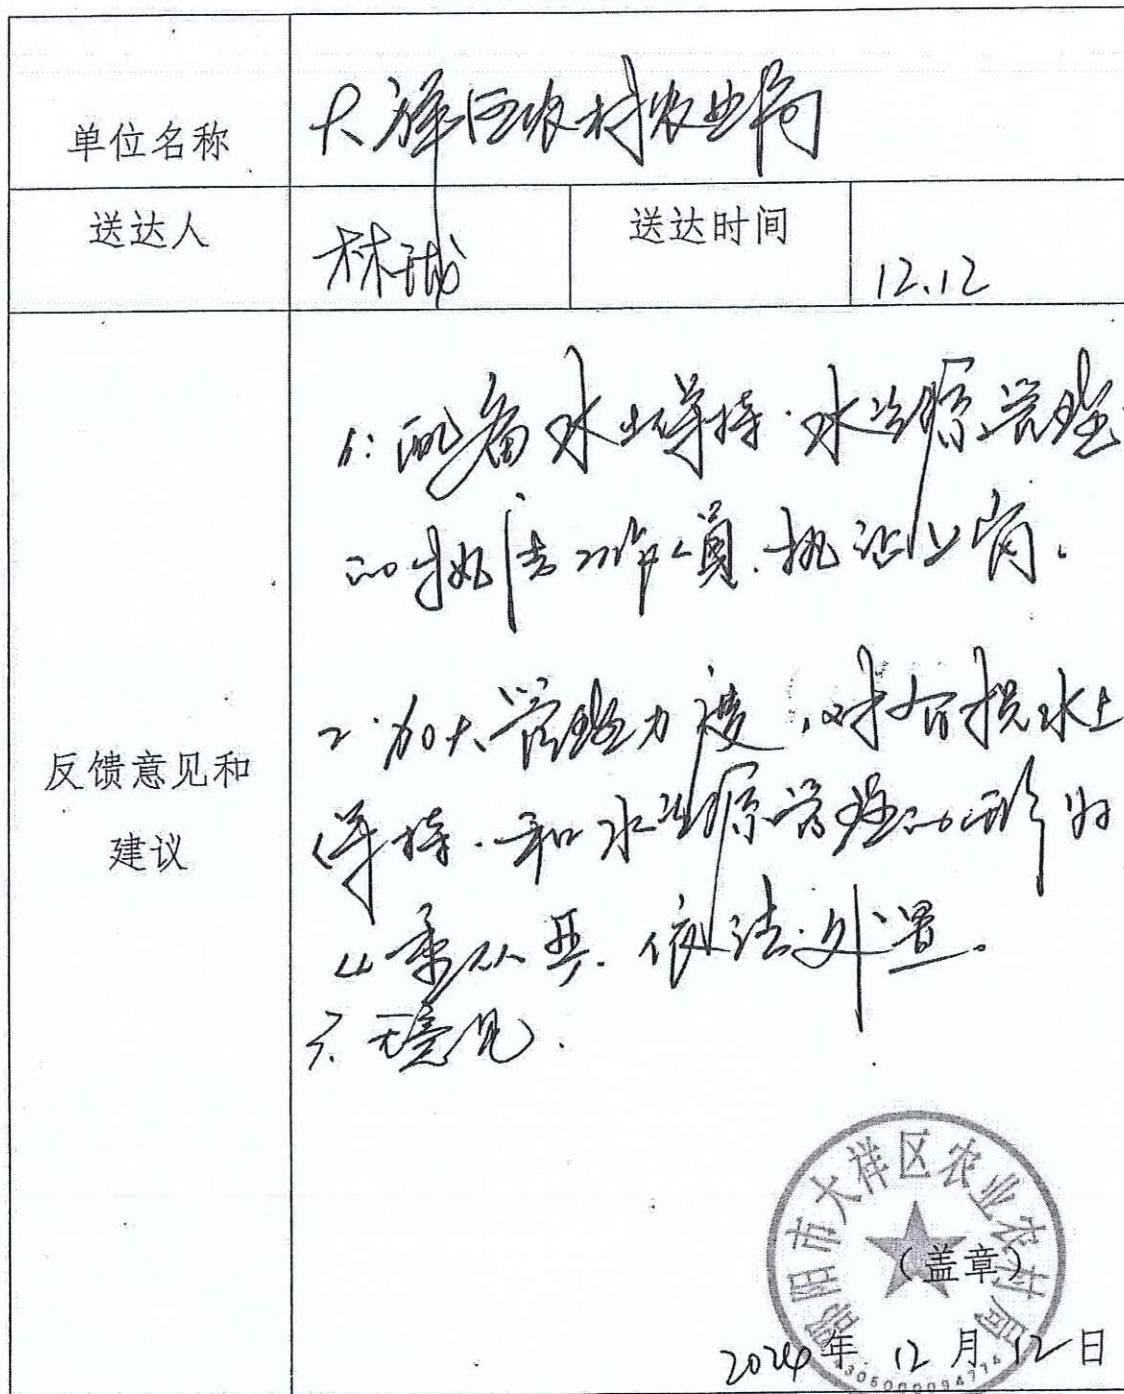 单位名称 大祥区农村农业局
送达人 林 送达时间 12.12
反馈意见和
建议
1: 配备水土保持.水资源管理
的执法工作人员.执证上岗.
2.加大管理力度,对有损水土
保持.和水资源管理的行为
从重从,依法处置。
3.无意见.
邵阳市大祥区农业农村局
(盖章)
2024年12月12日